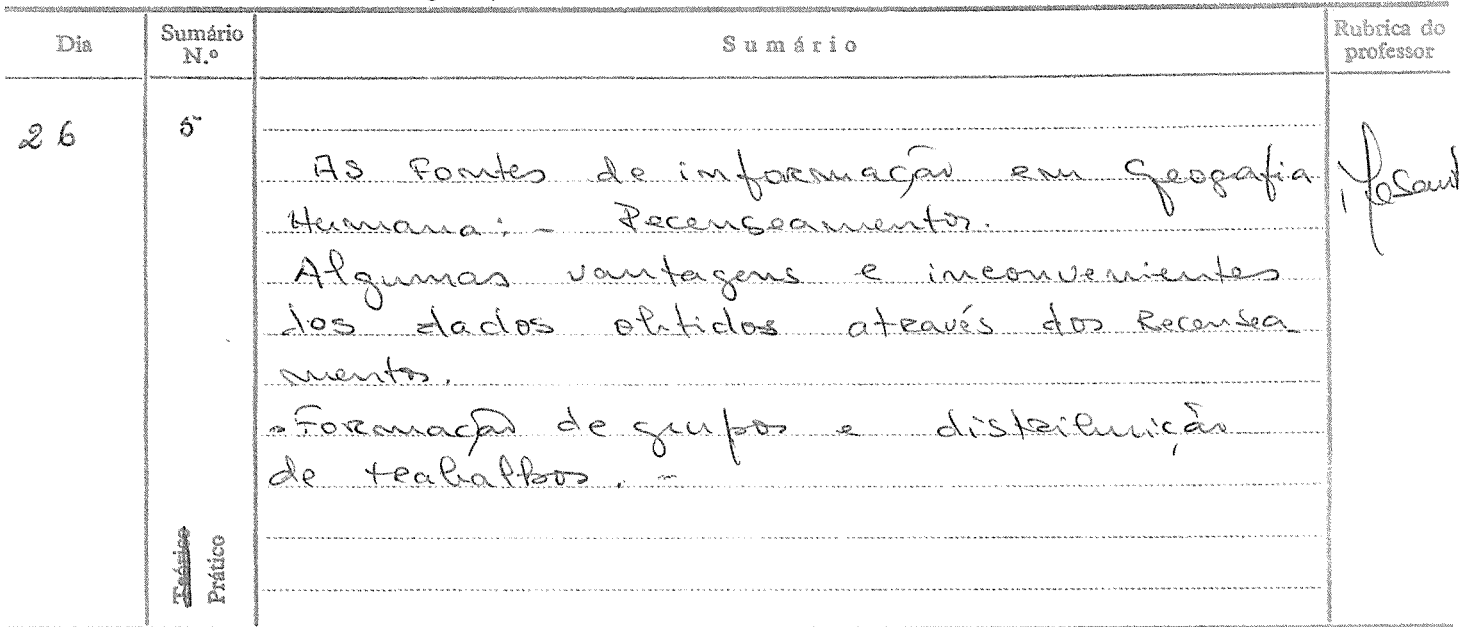 Dia
Sumário N.º
Sumário
Rubrica do professor
26
5
As Fontes de informação em Geografia
Humana: - Recenseamentos.
Algumas vantagens e inconvenientes
dos dados obtidos através dos Recensea
mentos.
- Formação de grupos e distribuição
de trabalhos. -
Teórico
Prático